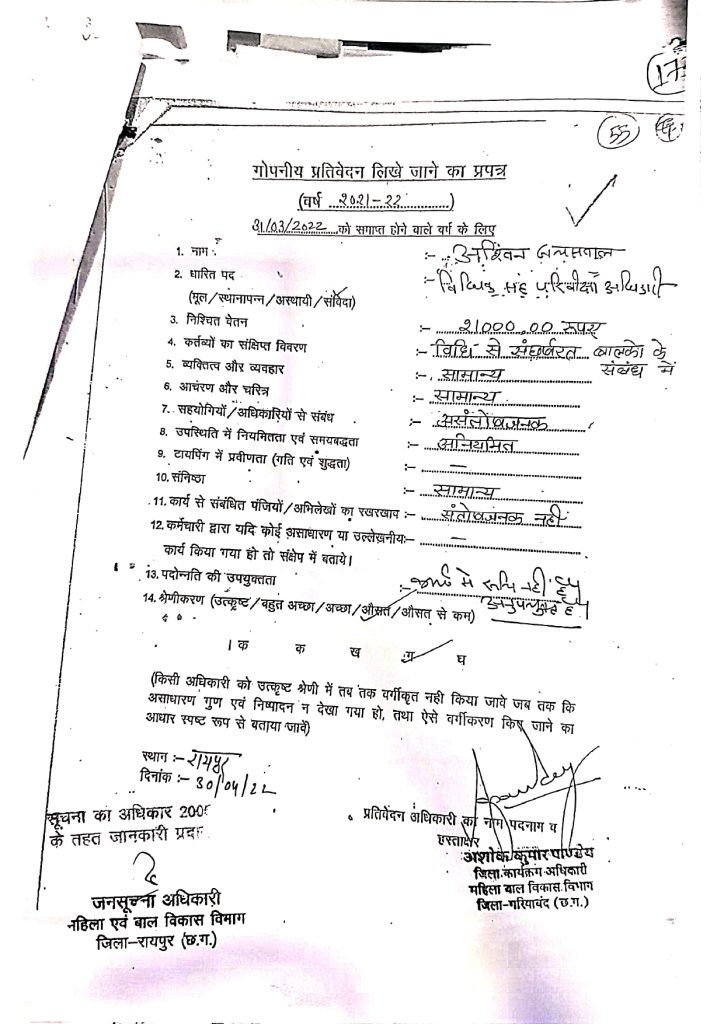 17
55
गोपनीय प्रतिवेदन लिखे जाने का प्रपत्र
(वर्ष ...2021-22............)
31/03/2022 ...को समाप्त होने वाले वर्ष के लिए
1. नाम :-
2. धारित पद :- विधिक सह परिवीक्षा अधिकारी
(मूल/स्थानापन्न/अस्थायी/संविदा)
3. निश्चित वेतन :- 21000.00 रूपए
4. कर्तव्यों का संक्षिप्त विवरण :- विधि से संघर्षरत बालको के संबंध में
5. व्यक्तित्व और व्यवहार :- सामान्य
6. आचंरण और चरित्र :- सामान्य
7. सहयोगियों/अधिकारियों से संबंध :- असंतोषजनक
8. उपस्थिति में नियमितता एवं समयबद्धता :- अनियमित
9. टायपिंग में प्रवीणता (गति एवं शुद्धता) :- —
10. संनिष्ठा :- सामान्य
11. कार्य से संबंधित पंजियों/अभिलेखों का रखरखाप :- संतोषजनक नही
12. कर्मचारी द्वारा यदि कोई असाधारण या उल्लेखनीय:- —
कार्य किया गया हो तो संक्षेप में बताये।
13. पदोन्नति की उपयुक्तता :- कार्य मे रूचि नही है
14. श्रेणीकरण (उत्कृष्ट/बहुत अच्छा/अच्छा/औसत/औसत से कम) अनुपयुक्त है
।क क ख ग घ
(किसी अधिकारी को उत्कृष्ट श्रेणी में तब तक वर्गीकृत नही किया जावे जब तक कि
असाधारण गुण एवं निष्पादन न देखा गया हो, तथा ऐसे वर्गीकरण किए जाने का
आधार स्पष्ट रूप से बताया जावें)
स्थान :- रायपुर
दिनांक :- 30/04/22
सूचना का अधिकार 2005
के तहत जानकारी प्रदा
जनसूचना अधिकारी
महिला एवं बाल विकास विभाग
जिला-रायपुर (छ.ग.)
प्रतिवेदन अधिकारी का नाम पदनाम व
हस्ताक्षर
अशोक कुमार पाण्डेय
जिला कार्यक्रम अधिकारी
महिला बाल विकास विभाग
जिला-गरियाबंद (छ.ग.)